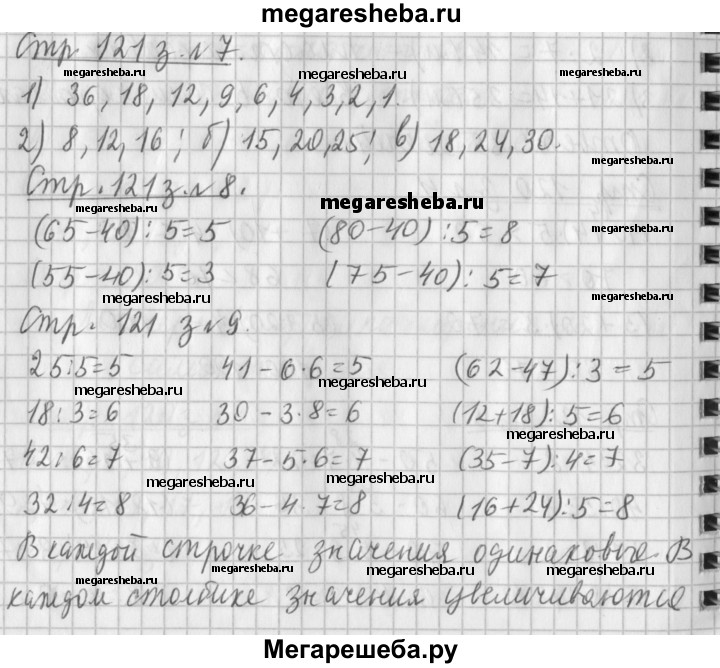 megaresheba.ru
Стр 121 з. №7.
megaresheba.ru megaresheba.ru megaresheba.ru
1) 36, 18, 12, 9, 6, 4, 3, 2, 1.
2) 8, 12, 16; б) 15, 20, 25; в) 18, 24, 30.
megaresheba.ru
Стр. 121 з. №8.
megaresheba.ru megaresheba.ru
(65-40):5=5 (80-40):5=8
megaresheba.ru
(55-40):5=3 (75-40):5=7
megaresheba.ru megaresheba.ru
Стр. 121 з №9.
megaresheba.ru
25:5=5 41-6·6=5 (62-47):3=5
megaresheba.ru megaresheba.ru
18:3=6 30-3·8=6 (12+18):5=6
megaresheba.ru
42:6=7 37-5·6=7 (35-7):4=7
megaresheba.ru megaresheba.ru
32:4=8 36-4·7=8 (16+24):5=8
В каждой строчке значения одинаковые. В
megaresheba.ru megaresheba.ru megaresheba.ru megaresheba.ru
каждом столбике значения увеличиваются
Мегарешеба.ру